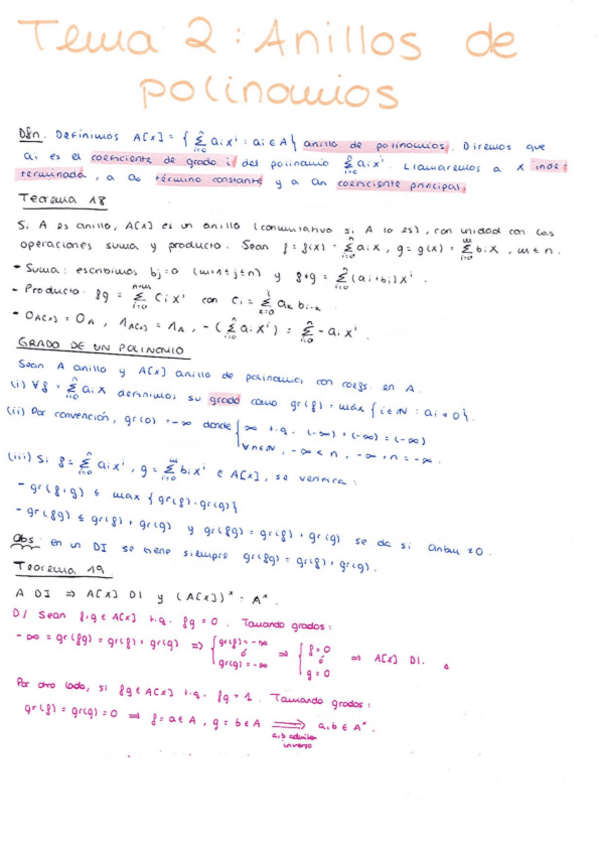 Tema 2: Anillos de
polinomios
Dfn. Definimos A[x] = { Σⁿᵢ₌₀ aᵢxⁱ : aᵢ ∈ A } anillo de polinomios. Diremos que
aᵢ es el coeficiente de grado i del polinomio Σⁿᵢ₌₀ aᵢxⁱ. Llamaremos a X indet
terminada, a a₀ término constante y a aₙ coeficiente principal.
Teorema 18
Si A es anillo, A[x] es un anillo (conmutativo si A lo es), con unidad con las
operaciones suma y producto. Sean f = f(x) = Σⁿᵢ₌₀ aᵢx, g = g(x) = Σᵐᵢ₌₀ bᵢx, m ≤ n.
- Suma: escribimos bⱼ = 0 (m+1 ≤ j ≤ n) y f+g = Σⁿᵢ₌₀ (aᵢ+bᵢ)xⁱ.
- Producto: fg = Σⁿ⁺ᵐᵢ₌₀ cᵢxⁱ con cᵢ = Σⁱₖ₌₀ aₖbᵢ₋ₖ
- 0_A[x] = 0_A, 1_A[x] = 1_A, -(Σⁿᵢ₌₀ aᵢxⁱ) = Σⁿᵢ₌₀ -aᵢxⁱ.
GRADO DE UN POLINOMIO
Sean A anillo y A[x] anillo de polinomios con coefs. en A.
(i) ∀f = Σⁿᵢ₌₀ aᵢx definimos su grado como gr(f) = máx {i∈ℕ : aᵢ ≠ 0}.
(ii) Por convención, gr(0) = -∞ donde { ∞ t.q. (-∞) + (-∞) = (-∞)
∀n∈ℕ, -∞ < n, -∞ + n = -∞.
(iii) Si f = Σⁿᵢ₌₀ aᵢxⁱ, g = Σᵐᵢ₌₀ bᵢxⁱ ∈ A[x], se verifica:
- gr(f+g) ≤ max {gr(f), gr(g)}
- gr(fg) ≤ gr(f) + gr(g) y gr(fg) = gr(f) + gr(g) se da si anbm ≠ 0.
Obs: en un DI se tiene siempre gr(fg) = gr(f) + gr(g).
Teorema 19
A DI ⇒ A[x] DI y (A[x])* = A*.
D/ Sean f,g ∈ A[x] t.q. fg = 0. Tomando grados:
-∞ = gr(fg) = gr(f) + gr(g) ⇒ { gr(f) = -∞ ó gr(g) = -∞ ⇒ { f=0 ó g=0 ⇒ A[x] DI.
Por otro lado, si fg ∈ A[x] t.q. fg = 1. Tomando grados:
gr(f) = gr(g) = 0 ⇒ f = a ∈ A, g = b ∈ A ⇒ a,b ∈ A*.
a,b admiten
inverso